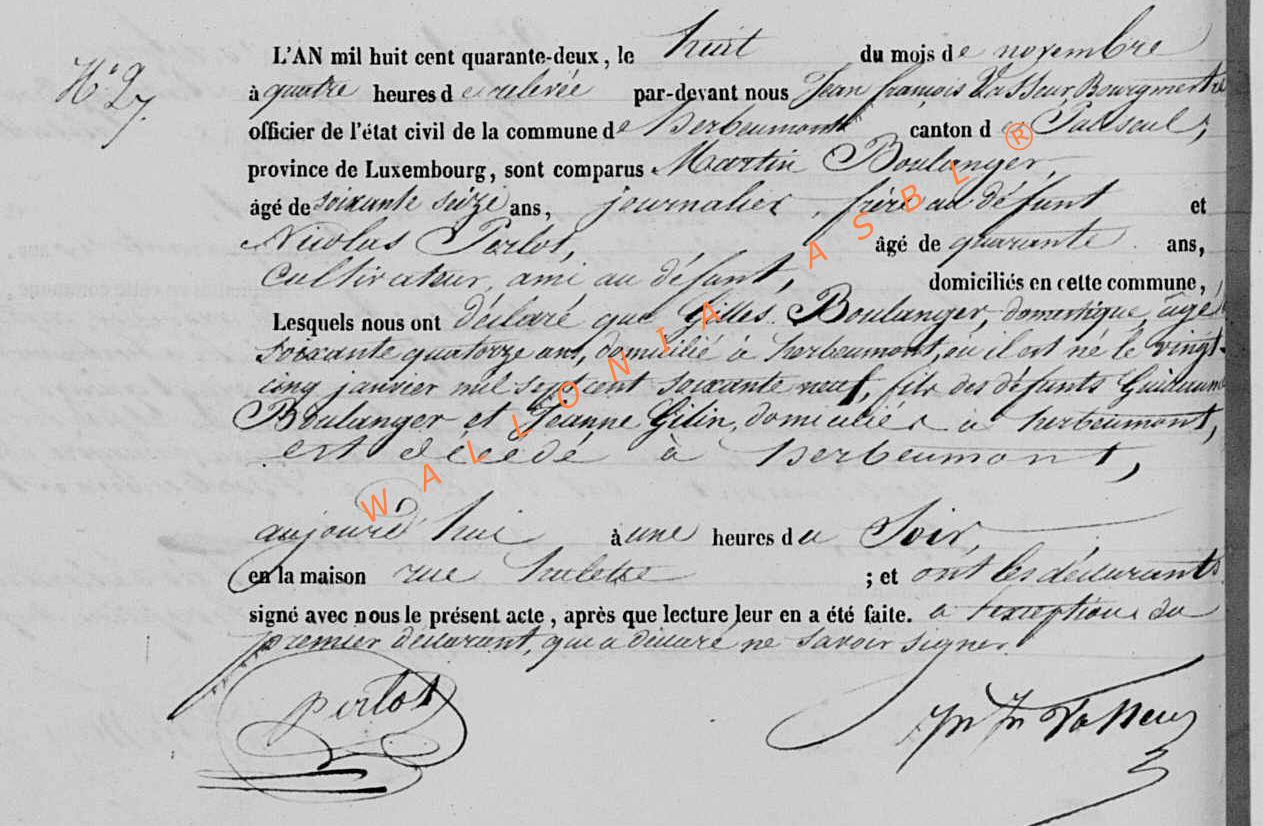 N° 27.
L'AN mil huit cent quarante-deux, le huit du mois de novembre
à quatre heures de relevée par-devant nous Jean françois Vasseur, Bourgmestre
officier de l'état civil de la commune de herbeumont canton de Paliseul,
province de Luxembourg, sont comparus Martin Boulanger,
âgé de soixante seize ans, journalier, frère au défunt et
Nicolas Perlot, âgé de quarante ans,
cultivateur, ami au défunt, domiciliés en cette commune,
Lesquels nous ont déclaré que Gilles Boulanger, domestique, âgé
soixante quatorze ans, domicilié à herbeumont, où il est né le vingt-
cinq janvier mil sept cent soixante neuf, fils des défunts Guillaume
Boulanger et Jeanne Gilin, domiciliés à herbeumont,
est décédé à herbeumont,
aujourd'hui à une heures du Soir,
en la maison rue ; et ont les déclarants
signé avec nous le présent acte, après que lecture leur en a été faite. a l'exception du
premier déclarant, qui a déclaré ne savoir signer.
perlot
WALLONIA ASBL ®